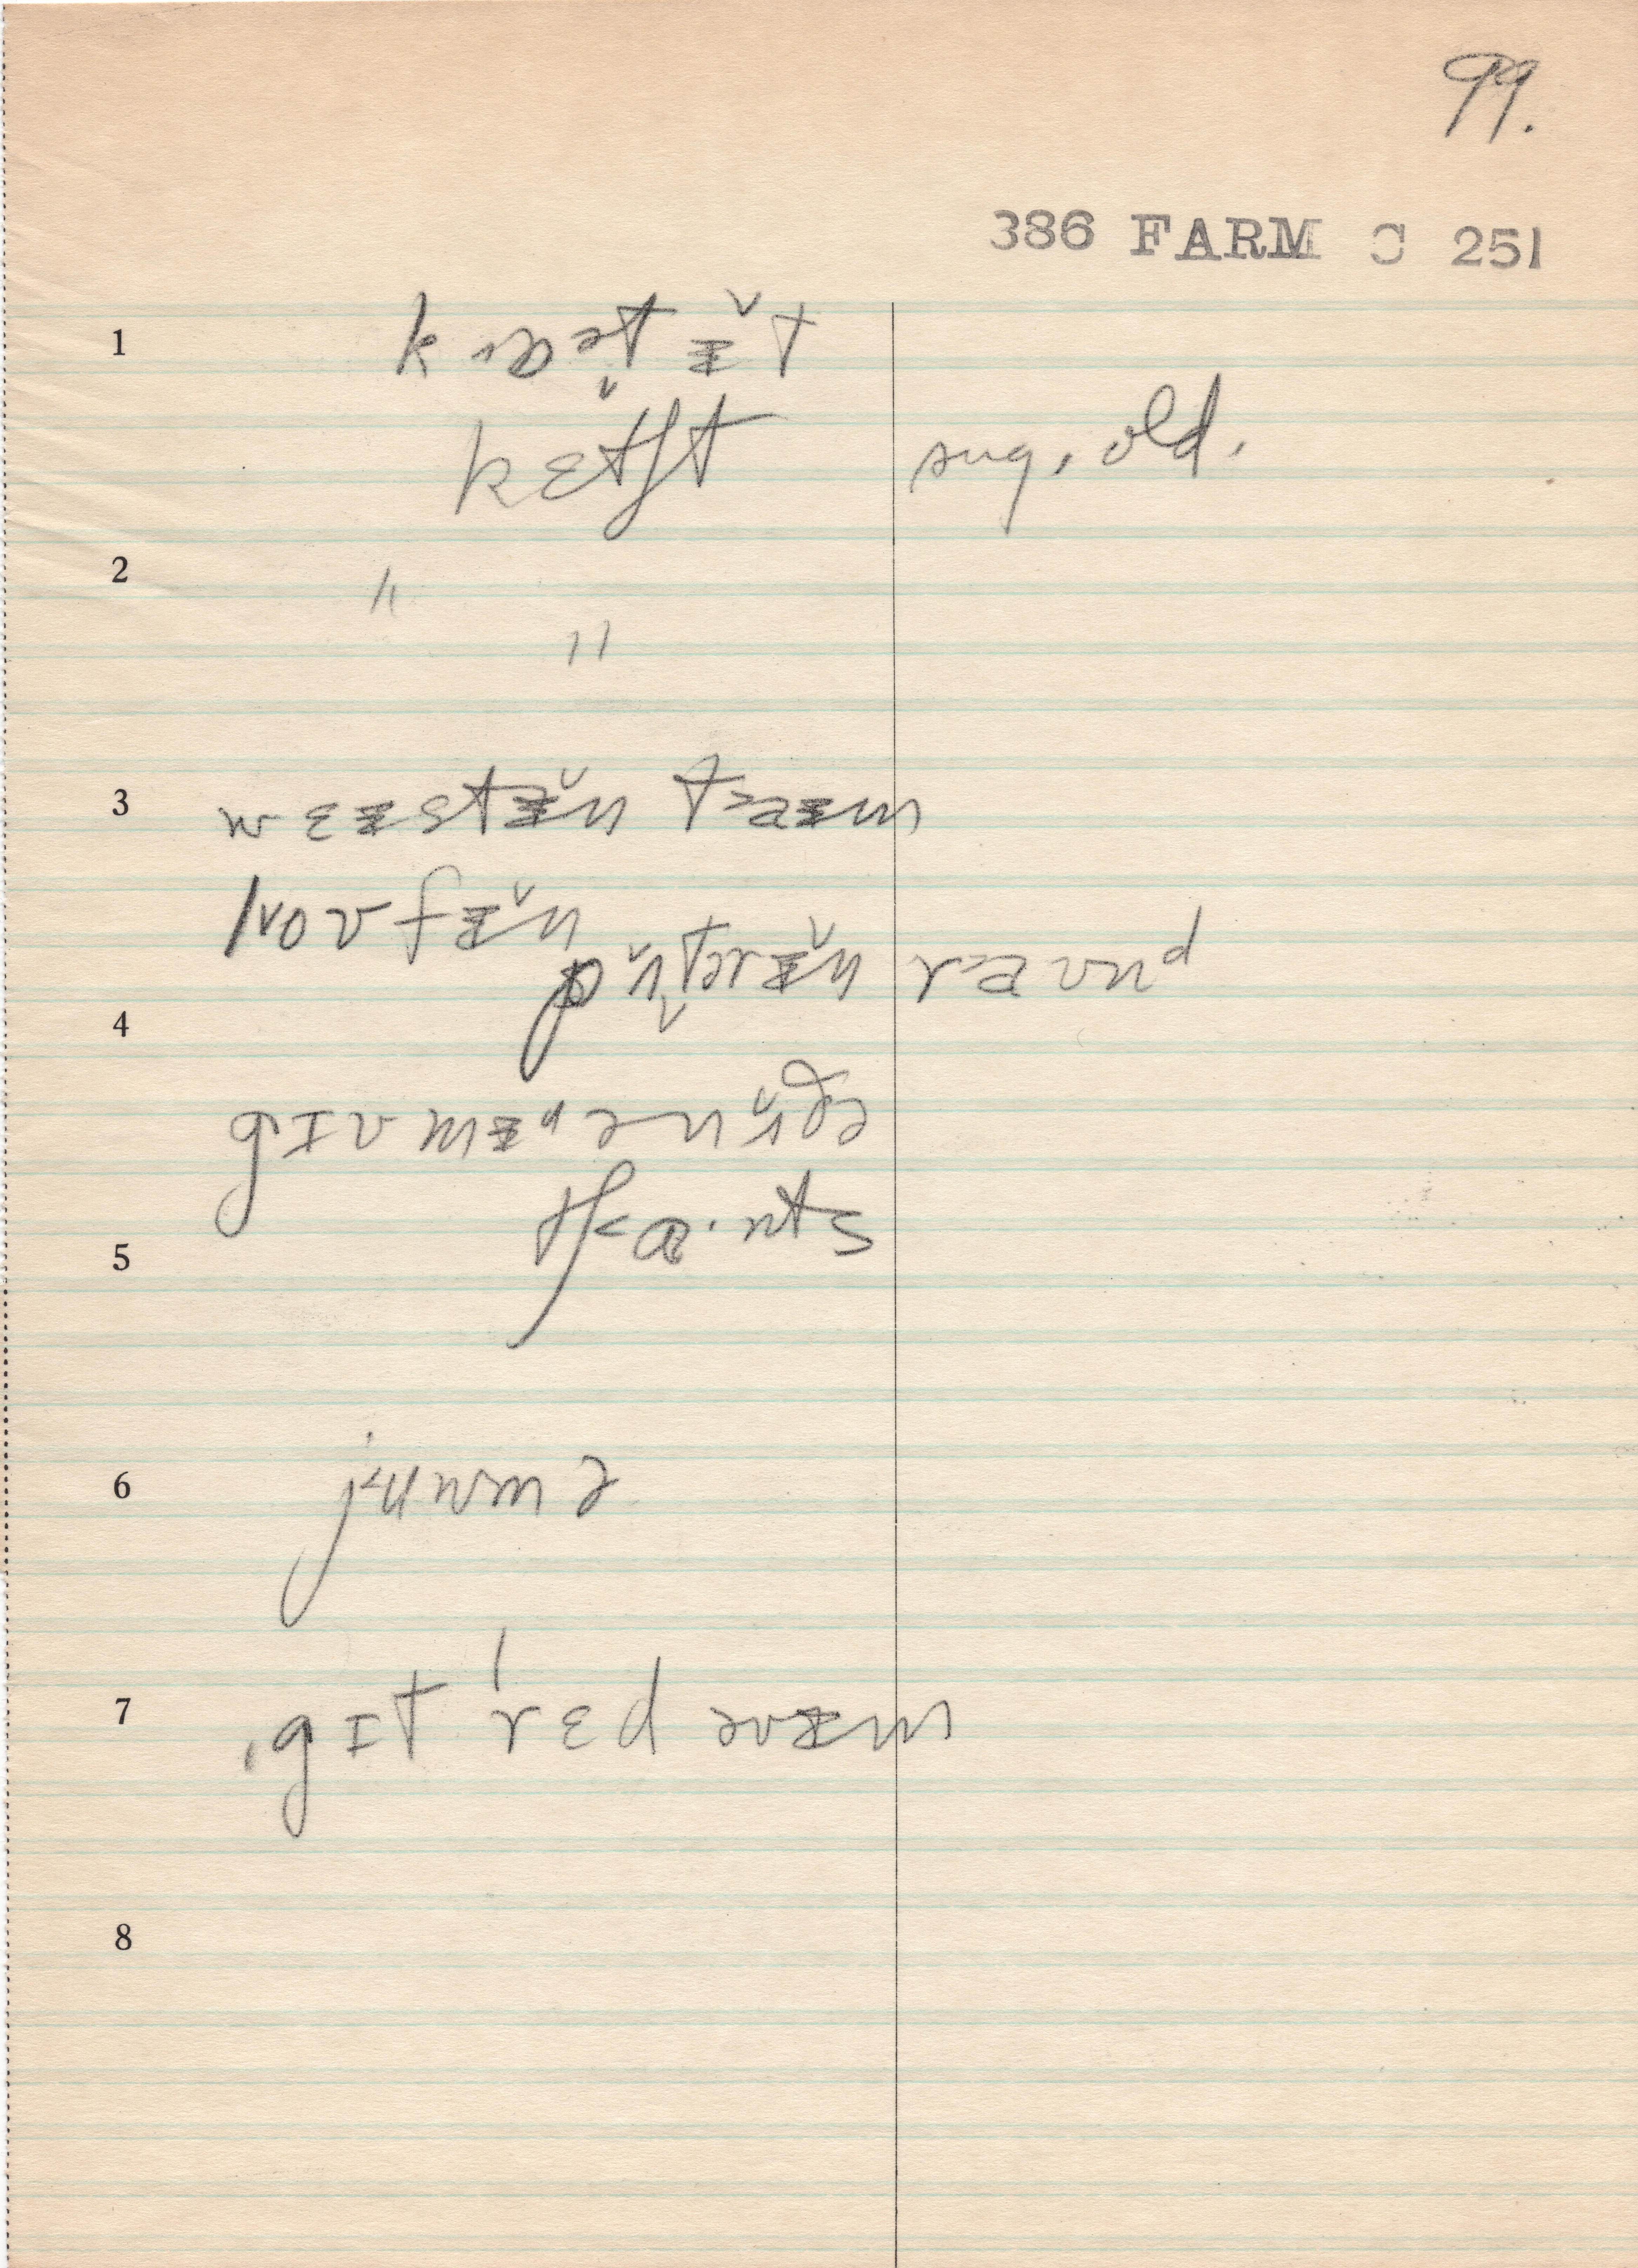 99.
386 FARM C 251
1 kɒət ɪ̆t
kɛtʃt sug. old.
2 "
"
3 wɛɪstɪ̆n taɪm
loʊfɪ̆n
pʌ̆tərɪ̆n raʊnᵈ
4
gɪv mɪ ənʌ̆ðə
tʃæ·nts
5
6 juwmə
7 ˌgɪt ˈrɛd əvɪm
8